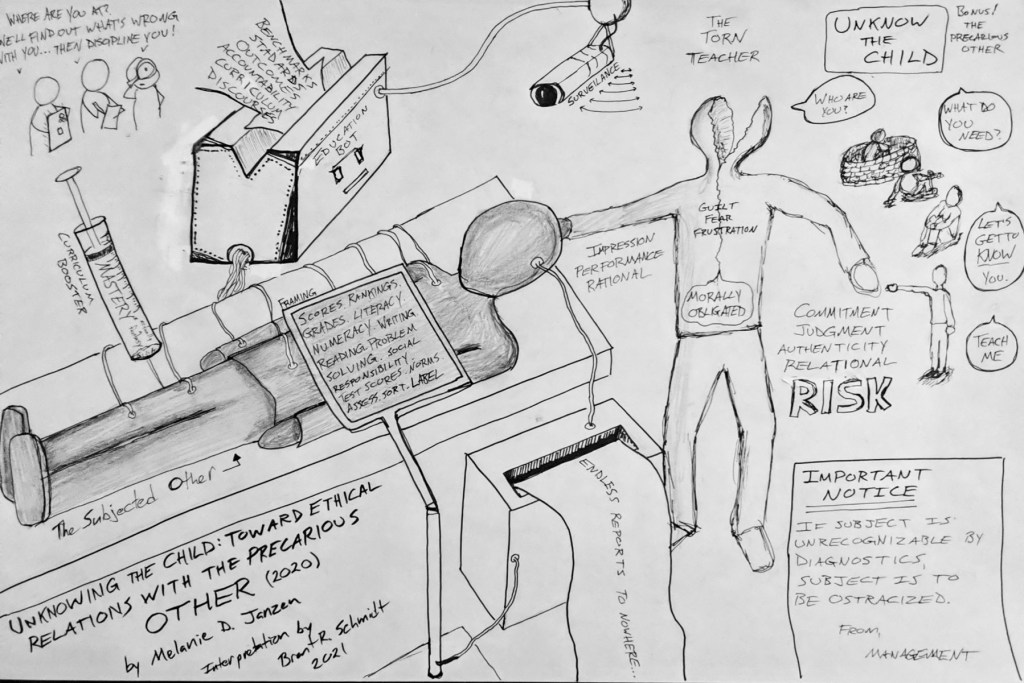 WHERE ARE YOU AT?
WE'LL FIND OUT WHAT'S WRONG
WITH YOU... THEN DISCIPLINE YOU!
BENCHMARKS
STANDARDS
OUTCOMES
ACCOUNTABILITY
CURRICULUM
DISCOURSES
EDUCATION
BOT
SURVEILLANCE
THE
TORN
TEACHER
UNKNOW
THE
CHILD
BONUS!
THE
PRECARIOUS
OTHER
WHO ARE
YOU?
WHAT DO
YOU
NEED?
LET'S
GET TO
KNOW
YOU.
TEACH
ME
CURRICULUM
BOOSTER
MASTERY
GUILT
FEAR
FRUSTRATION
MORALLY
OBLIGATED
IMPRESSION
PERFORMANCE
RATIONAL
COMMITMENT
JUDGMENT
AUTHENTICITY
RELATIONAL
RISK
FRAMING
SCORES. RANKINGS.
GRADES. LITERACY.
NUMERACY. WRITING
READING. PROBLEM
SOLVING. SOCIAL
RESPONSIBILITY
TEST SCORES. NORMS
ASSESS. SORT. LABEL
The Subjected Other
ENDLESS REPORTS TO NOWHERE...
UNKNOWING THE CHILD: TOWARD ETHICAL
RELATIONS WITH THE PRECARIOUS
OTHER (2020)
by Melanie D. Janzen
Interpretation by
Brant R. Schmidt
2021
IMPORTANT
NOTICE
IF SUBJECT IS
UNRECOGNIZABLE BY
DIAGNOSTICS,
SUBJECT IS TO
BE OSTRACIZED.
FROM,
MANAGEMENT